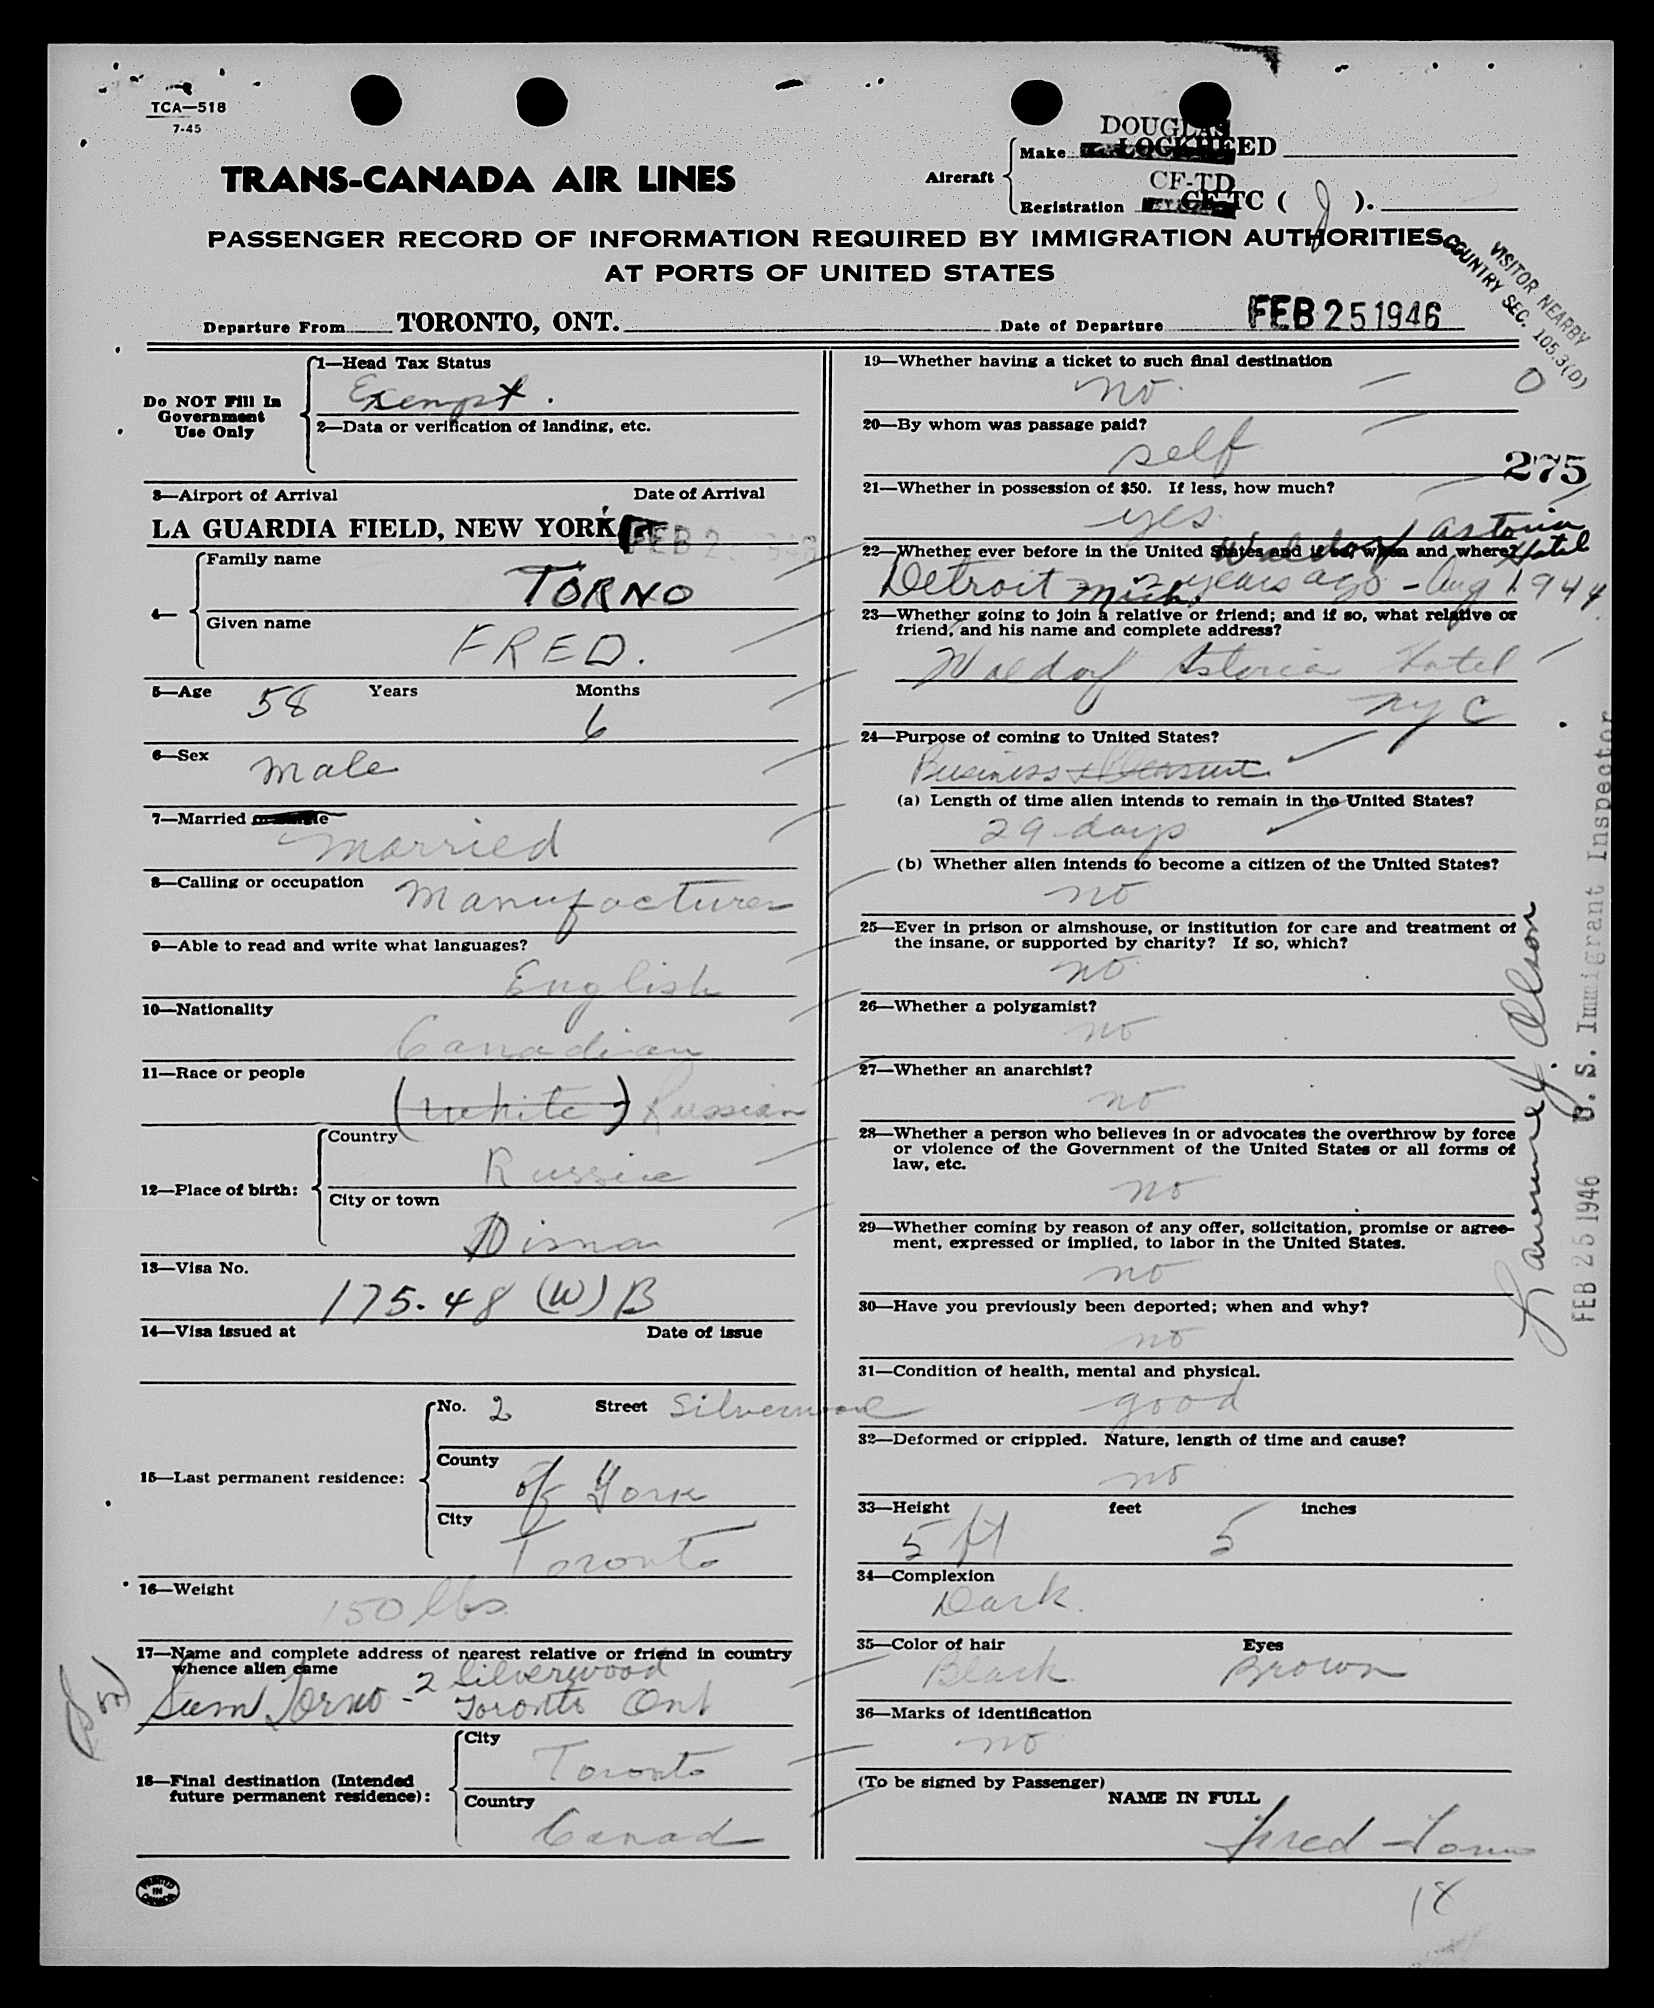 TCA—518
7-45
TRANS-CANADA AIR LINES
Aircraft
Make
DOUGLAS
LOCKHEED
Registration
CF-TD
CF-TC ( J ).
PASSENGER RECORD OF INFORMATION REQUIRED BY IMMIGRATION AUTHORITIES
AT PORTS OF UNITED STATES
VISITOR NEARBY
COUNTRY SEC. 105.3(D)
Departure From TORONTO, ONT. Date of Departure FEB 25 1946
Do NOT Fill In
Government
Use Only
1—Head Tax Status
Exempt.
2—Data or verification of landing, etc.
3—Airport of Arrival Date of Arrival
LA GUARDIA FIELD, NEW YORK FEB 2
4—
Family name
TORNO
Given name
FRED.
5—Age 58 Years Months 6
6—Sex Male
7—Married or single
Married
8—Calling or occupation Manufacturer
9—Able to read and write what languages?
English
10—Nationality
Canadian
11—Race or people
(White) Russian
12—Place of birth:
Country
Russia
City or town
Disna
13—Visa No.
175.48 (W) B
14—Visa issued at Date of issue
15—Last permanent residence:
No. 2 Street Silverwood
County
of York
City
Toronto
16—Weight
150 lbs
17—Name and complete address of nearest relative or friend in country
whence alien came
Son
Sam Torno - 2 Silverwood
Toronto Ont
18—Final destination (Intended
future permanent residence):
City
Toronto
Country
Canad
PRINTED
IN
CANADA
19—Whether having a ticket to such final destination
no. 0
20—By whom was passage paid?
self
275
21—Whether in possession of $50. If less, how much?
yes
Waldorf Astoria
Hotel
22—Whether ever before in the United States and if so, when and where?
Detroit Mich. 2 years ago - Aug 1944
23—Whether going to join a relative or friend; and if so, what relative or
friend, and his name and complete address?
Waldorf Astoria Hotel
NYC
24—Purpose of coming to United States?
Business & Pleasure
(a) Length of time alien intends to remain in the United States?
29 days
(b) Whether alien intends to become a citizen of the United States?
no
25—Ever in prison or almshouse, or institution for care and treatment of
the insane, or supported by charity? If so, which?
no
26—Whether a polygamist?
no
27—Whether an anarchist?
no
28—Whether a person who believes in or advocates the overthrow by force
or violence of the Government of the United States or all forms of
law, etc.
no
29—Whether coming by reason of any offer, solicitation, promise or agree-
ment, expressed or implied, to labor in the United States.
no
30—Have you previously been deported; when and why?
no
31—Condition of health, mental and physical.
good
32—Deformed or crippled. Nature, length of time and cause?
no
33—Height feet inches
5 ft 5
34—Complexion
Dark.
35—Color of hair Eyes
Black Brown
36—Marks of identification
no
(To be signed by Passenger)
NAME IN FULL
Fred Torno
18
Lawrence J. Olson
FEB 25 1946 U. S. Immigrant Inspector